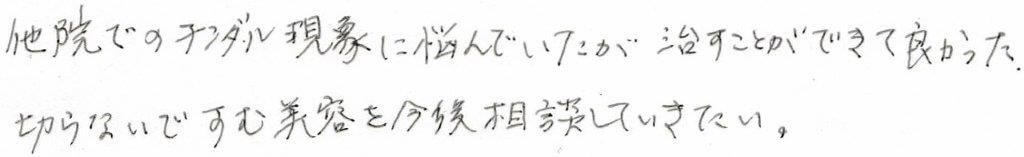 他院でのチンダル現象に悩んでいたが治すことができて良かった.
切らないですむ美容を今後相談していきたい。